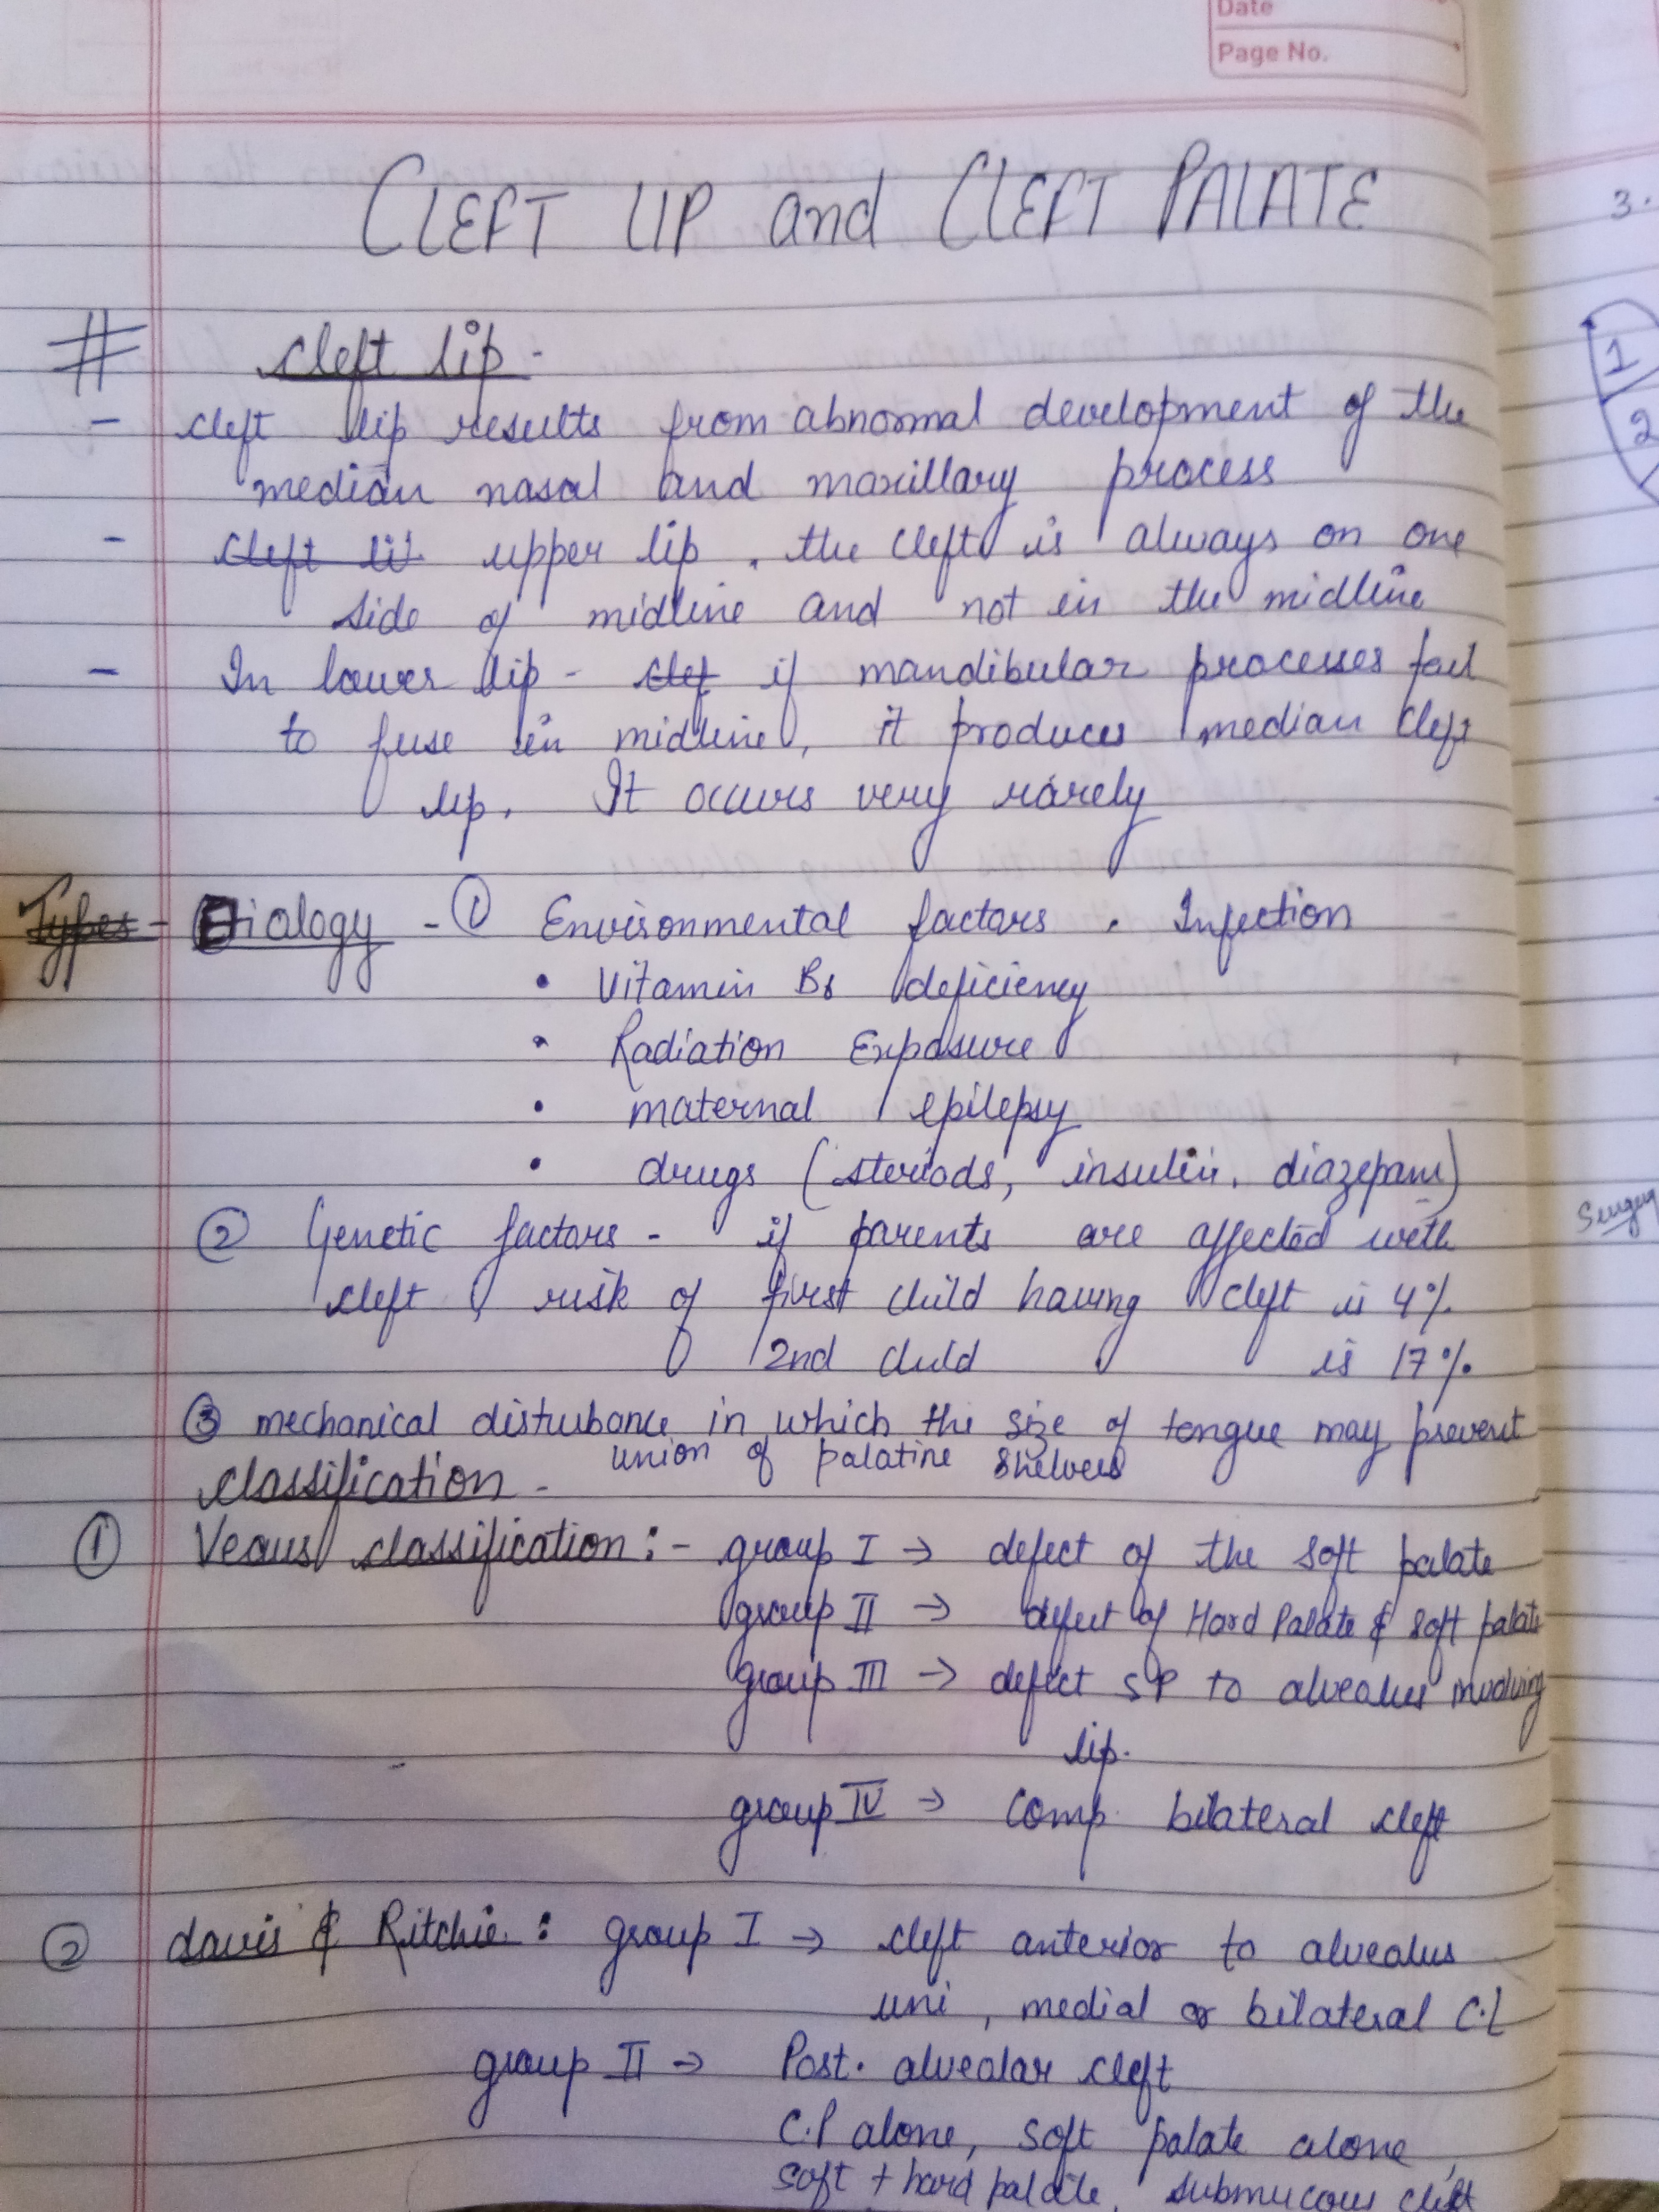 Date
Page No.
CLEFT LIP and CLEFT PALATE
# cleft lip -
- cleft lip results from abnormal development of the
median nasal and maxillary process
- cleft li upper lip, the cleft is always on one
side of midline and not in the midline
- In lower lip - clef if mandibular processes fail
to fuse in midline, it produces median cleft
lip. It occurs very rarely
Types - Etiology - ① Environmental factors . Infection
• Vitamin B6 deficiency
• Radiation Exposure
• maternal epilepsy
• drugs (steriods, insulin, diazepam)
② Genetic factors - if parents are affected with
cleft, risk of first child having cleft is 4%
2nd child is 17%
③ mechanical disturbance in which the size of tongue may prevent
union of palatine shelves
classification -
① Veaus classification :- group I → defect of the soft palate
group II → defect of Hard Palate & soft palate
group III → defect SP to alveolus involving
lip.
group IV → comp. bilateral cleft
② davis & Ritchie : group I → cleft anterior to alveolus
uni, medial or bilateral C.L
group II → Post. alveolar cleft
C.P alone, soft palate alone,
soft + hard palate, submucous cleft
3.
1
2